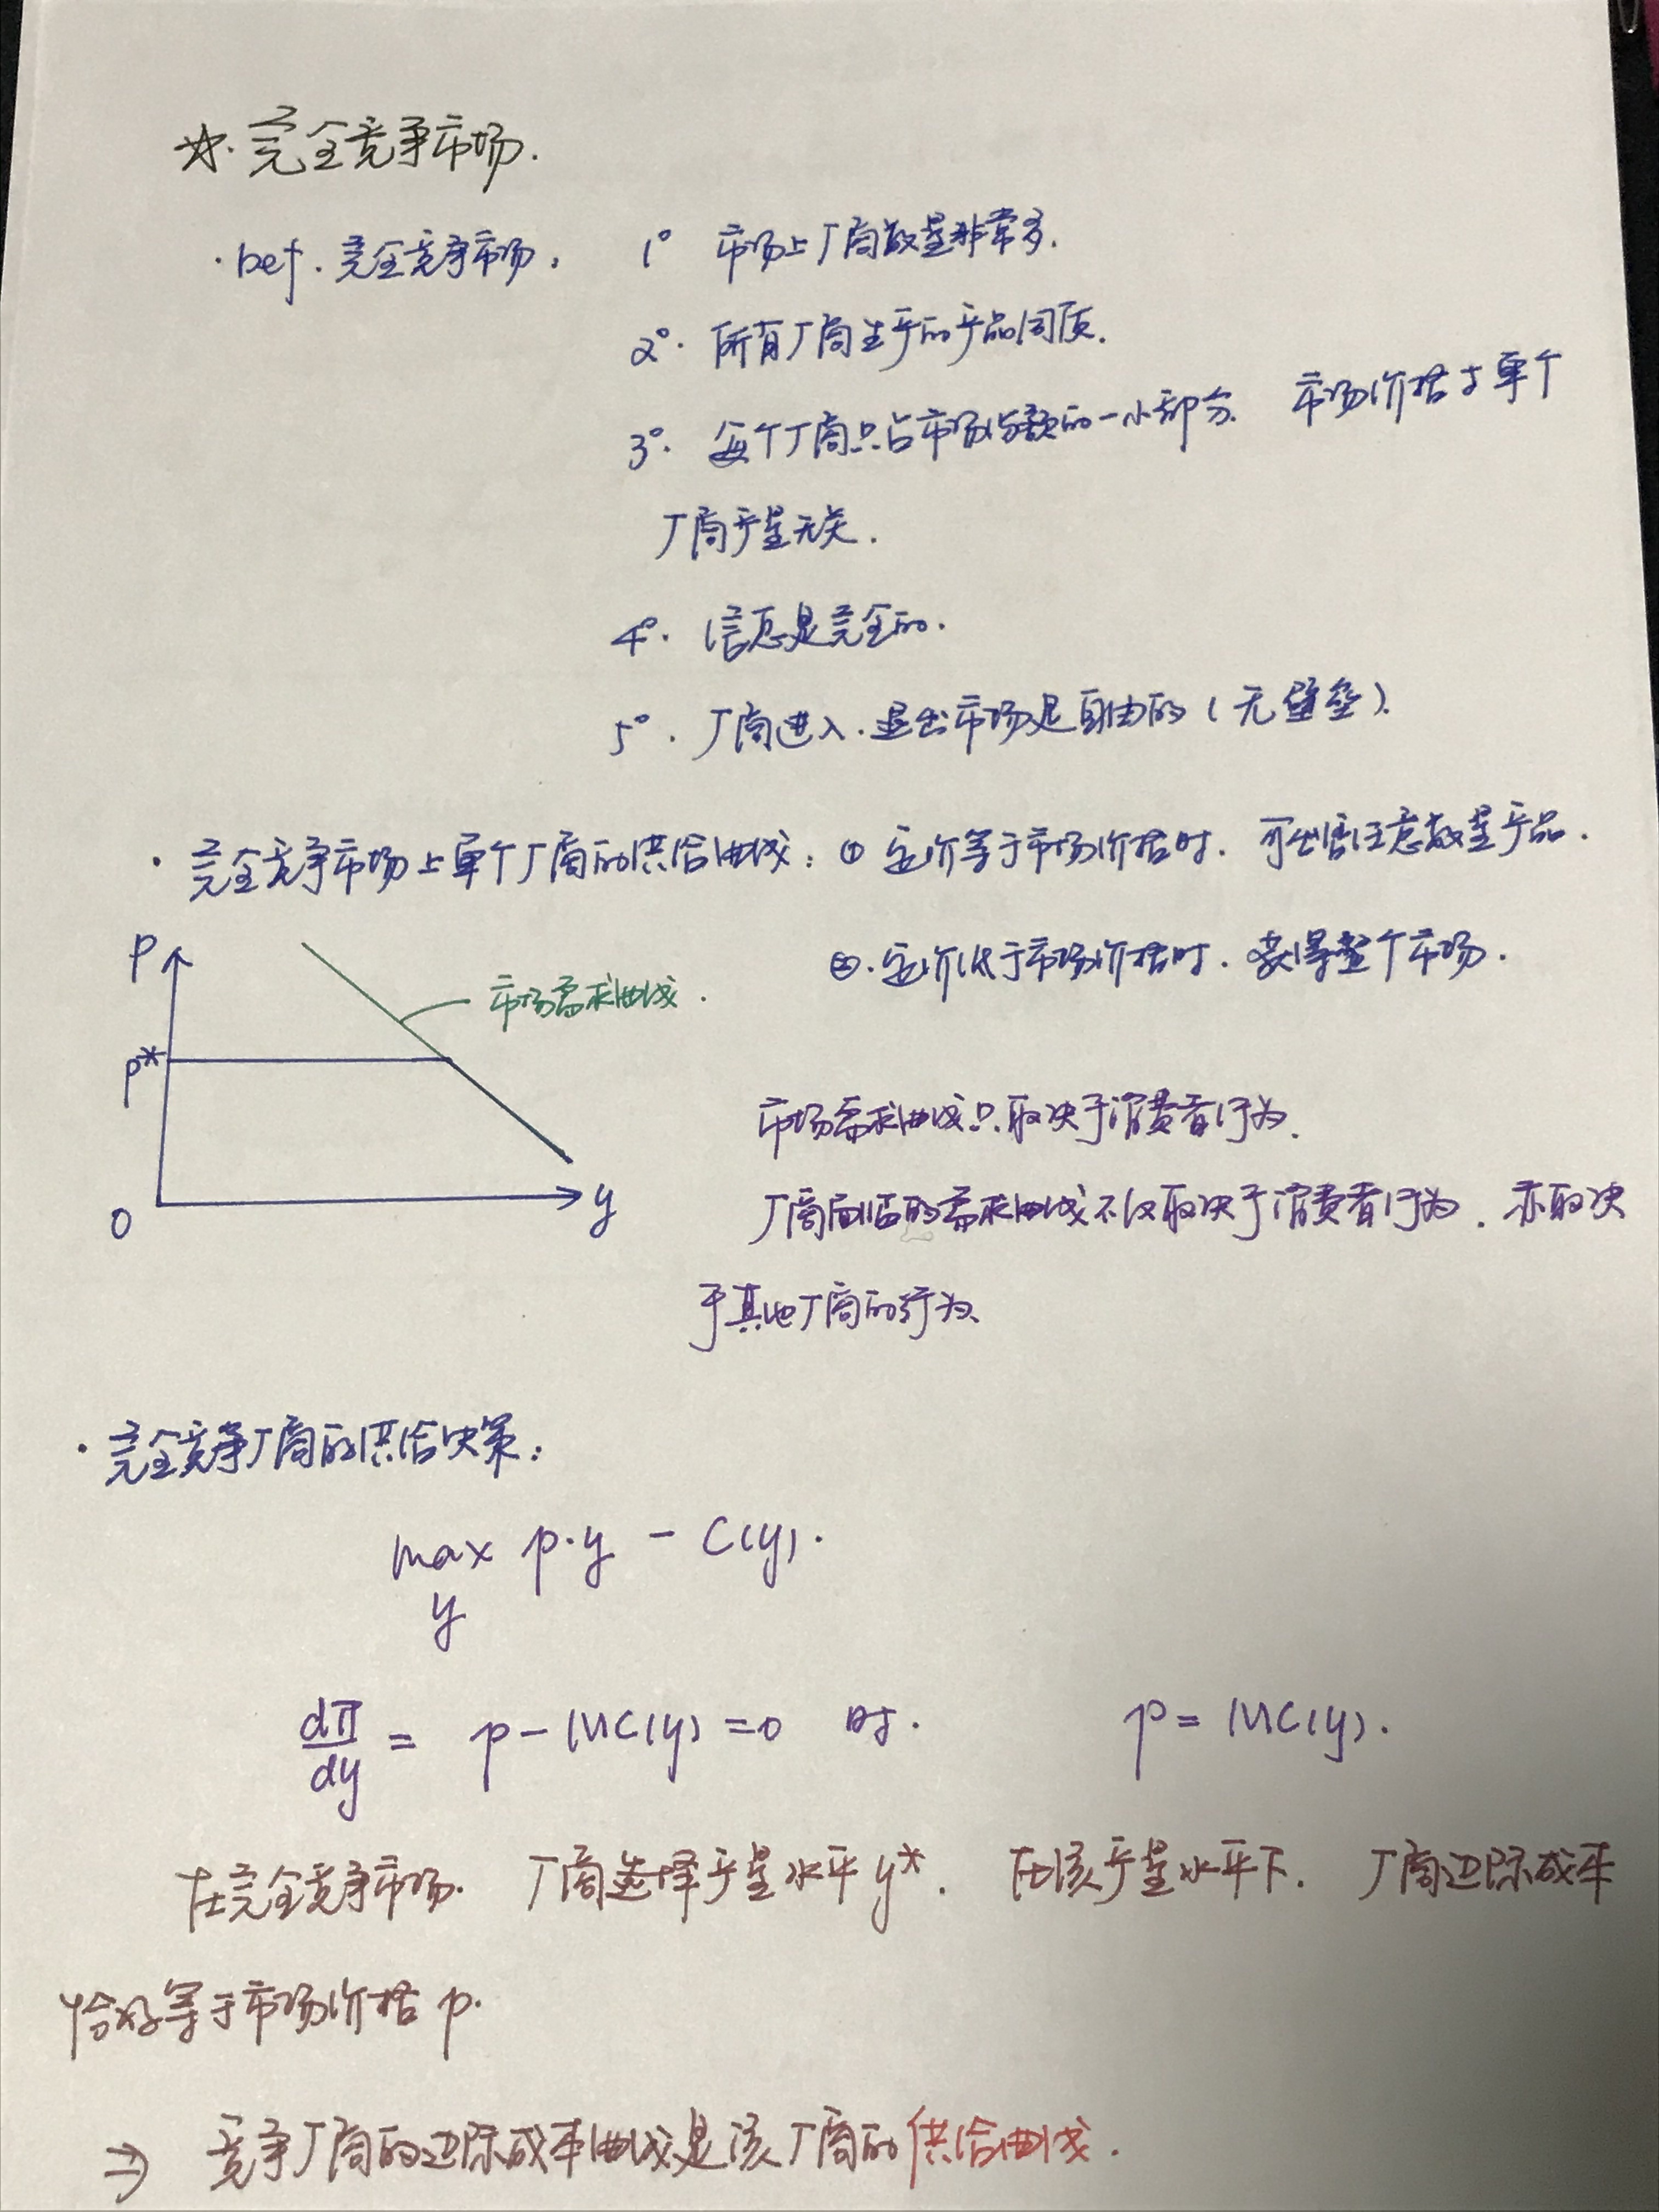 ☆. 完全竞争市场.
· Def. 完全竞争市场: 1° 市场上厂商数量非常多.
2°. 所有厂商生产的产品同质.
3°. 每个厂商只占市场份额的一小部分. 市场价格与单个
厂商产量无关.
4°. 信息是完全的.
5°. 厂商进入.退出市场是自由的(无壁垒).
· 完全竞争市场上单个厂商的供给曲线: ① 定价等于市场价格时. 可出售任意数量产品.
②. 定价低于市场价格时. 获得整个市场.
p
市场需求曲线.
p*
0
y
市场需求曲线只取决于消费者行为.
厂商面临的需求曲线不仅取决于消费者行为. 亦取决
于其他厂商的行为.
· 完全竞争厂商的供给决策:
max p·y - C(y).
y
dπ/dy = p - MC(y) = 0 时. p = MC(y).
在完全竞争市场. 厂商选择产量水平 y*. 在该产量水平下. 厂商边际成本
恰好等于市场价格 p.
⇒ 竞争厂商的边际成本曲线是该厂商的供给曲线.